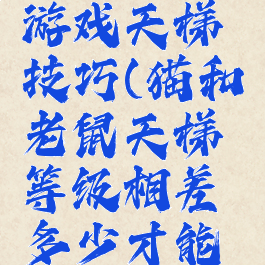 游戏天梯
技巧(猫和
老鼠天梯
等级相差
多少才能